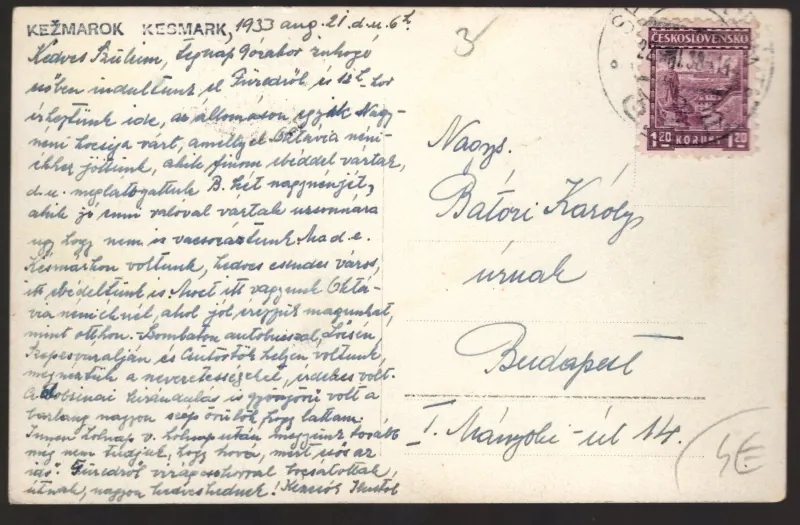 KEŽMAROK KESMARK, 1933 aug. 21. d.u. 6h.
Kedves Szüleim, Tegnap zuhogó
esőben indultunk el Füredről és 12h-kor
érkeztünk ide, az állomáson egyik Nagy-
néni kocsija várt, amellyel Oktávia néni
ékhez jöttünk, akik finom ebéddel vártak,
d.u. meglátogattuk B. két nagynénjét,
akik jó valóval vártak uzsonnára
úgy hogy nem is vacsoráztunk. Ma d.e.
Késmárkon voltunk, kedves csendes város,
itt ebédeltünk is. Most itt vagyunk Oktá-
via néniéknél, ahol jól érezzük magunkat,
mint otthon. Szombaton autobusszal, Lőcsén,
Szepesváralján és Csütörtök helyen voltunk,
megnéztük a nevezetességeket, érdekes volt.
A dobsinai kirándulás is gyönyörű volt a
barlang nagyon szép örülök, hogy láttam.
Innen holnap v. holnap után megyünk tovább
még nem tudjuk, hogy hova, mert esős az
idő. Füredről virágcsokorral bocsátottak
útnak, nagyon kedvesek
3
ČESKOSLOVENSKO
1.20 KORUNA 1.20
Nagys.
Bátori Károly
úrnak
Budapest
I. Mányoki-út 14.
4E